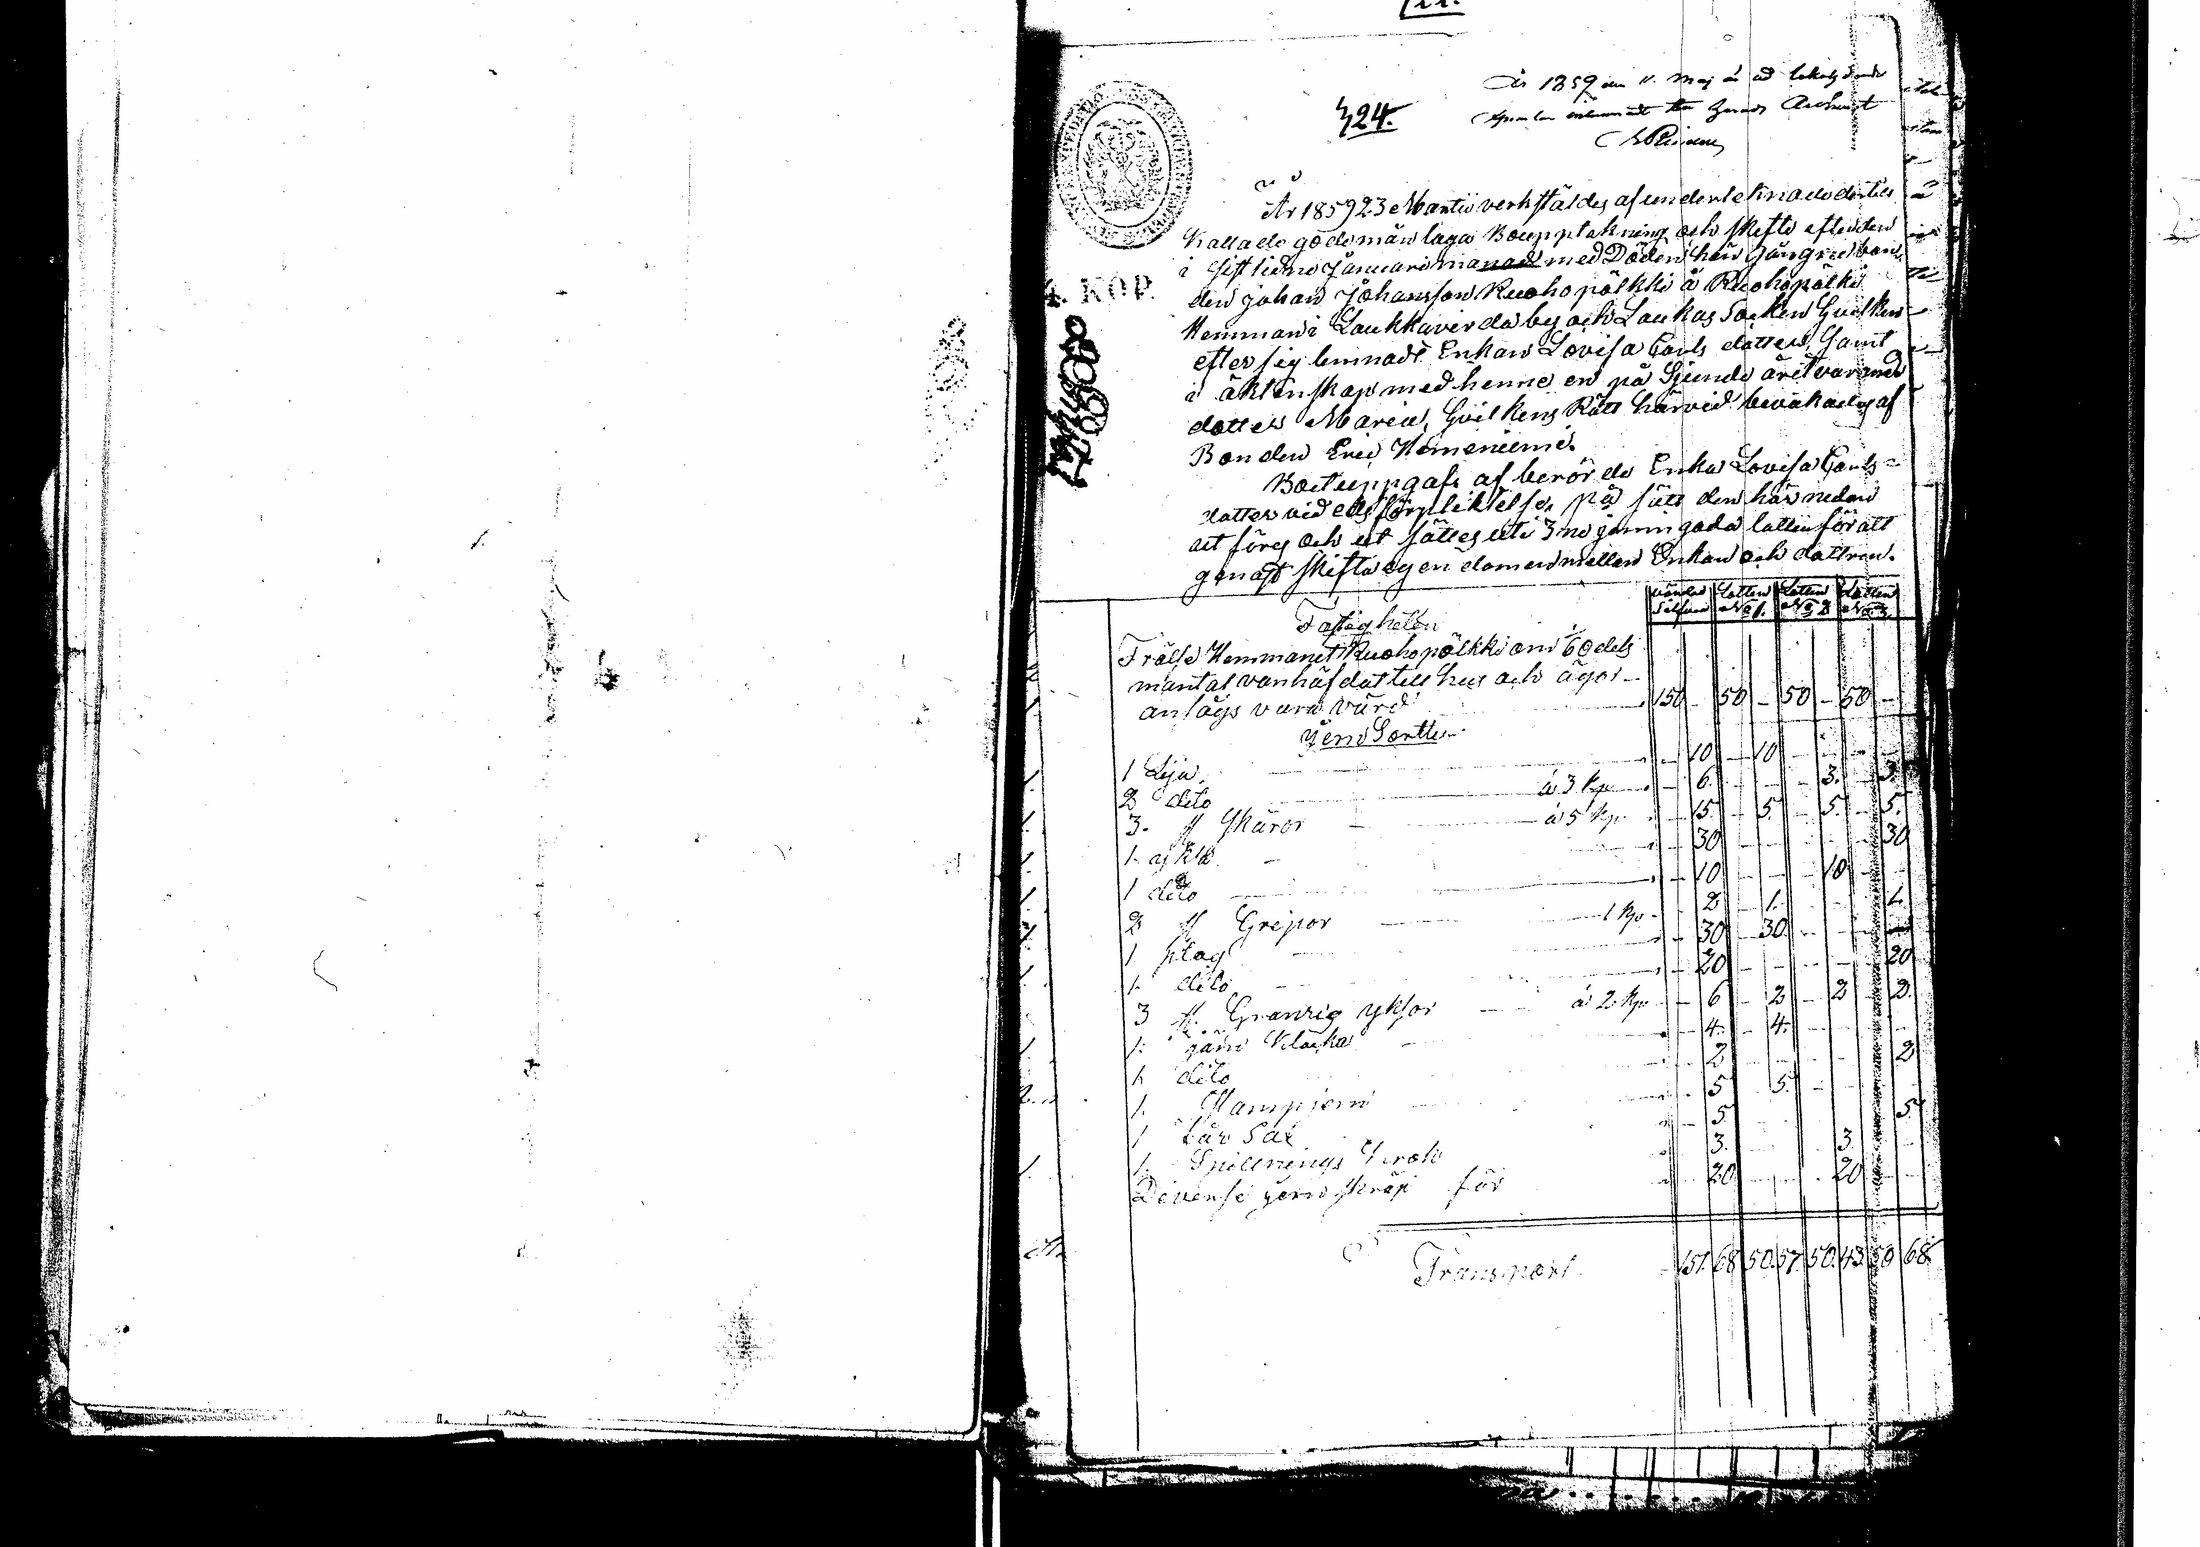 424.
År 1859 den 11. Maj
År 1859 23 Martii verkstäldes af underteknade dertill
Kallade gode män laga Boupptekning och skifte efter den
i sistledne Januari manad med Döden hän gångne bon
den Johan Johansson Ruohopölkki å Ruohopölki
Hemman i Laukkavirda by och Laukas Socken Hvilken
efter sig lemnade Enkan Lovisa Carls dotter, Samt
i äktenskap med henne en på Sjunde året varande
dotter Maria, Hvilkens Rätt härvid bevakades af
Bonden Eric Hömeniemi.
Boet uppgafs af berörde Enka Lovisa Carls-
dotter vid eds förpliktelse, på sätt den här nedan
ut föres och ut sättes uti 3ne jemngoda lotter för att
genast skifta egendomen mellan Enkan och dottren.
4. KOP.
Värdet Silfver Lotten No 1. Lotten No 2 Lotten No 3.
Fastigheten
Frälse Hemmanet Ruohopölkki om 1/60 dels
mantal vanhäfdat till hus och ägor
anságs vara värd 150 - 50 - 50 - 50 -
Jern Sortter
1 Lija 10 10
2 dito á 3 Kp 6. 3. 3.
3. st Skäror á 5 Kp. 15. 5. 5. 5.
1. 30 30
1 dito 10 10
2 st Grepor 1 Kp 2 1. 1.
1 plog 30 30
1. dito 20 20
3 st. yksor á 2 Kp. 6 2 2 2.
1. järn Klocka 4. 4.
1. dito 2 2
1. 5 5.
1 får Sax 5. 5.
1. Spillnings Krok 3. 3.
Diverse jern skräp för 20 20
Transport 151. 68 50. 57. 50. 43 50 68